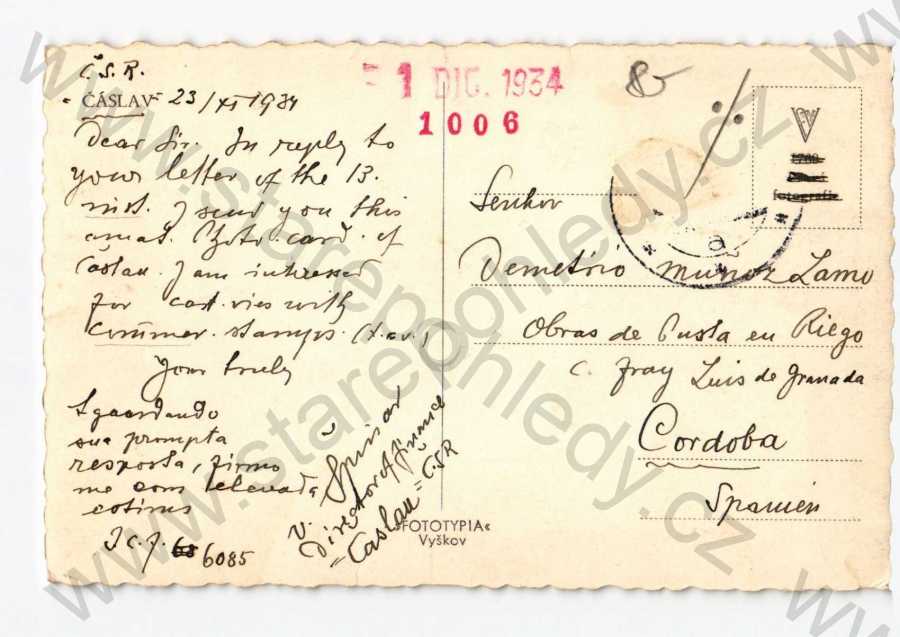 Č.S.R.
ČÁSLAV 23/XI 1934
Dear Sir. In reply to
your letter of the 13.
inst. I send you this
amat. Foto card. of
Čáslau. I am interessed
for card vies with
commer. stamps. (t.c.v.)
Your truly
Aguardando
sua prompta
resposta, firmo
me com elevada
estima
I.c.f. 6085
V. Spinar
Director of finance
Čáslau - ČSR
»FOTOTYPIA«
Vyškov
-1 DIC. 1934
1006
85
Senhor
Demetrio Muñoz Lamo
Obras de Puesta en Riego
C. Fray Luis de Granada
Cordoba
Spanien
www.starepohledy.cz